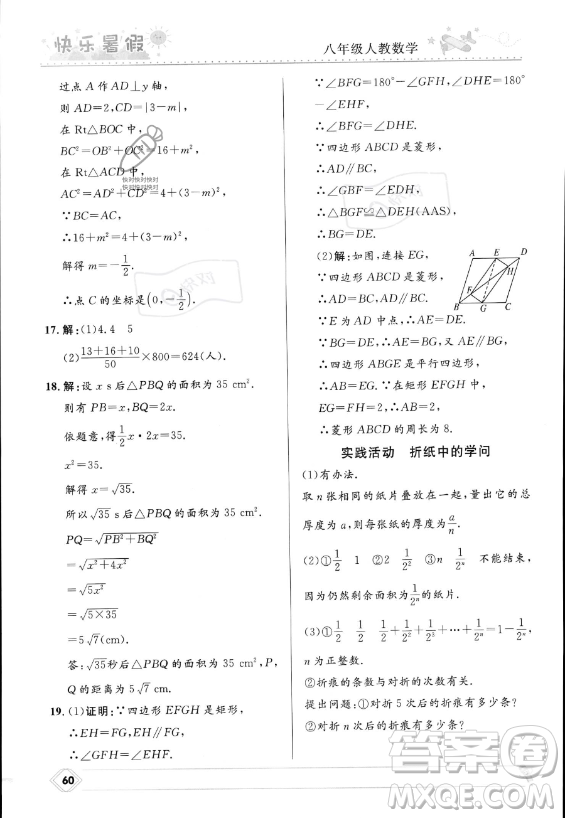 快乐暑假
八年级人教数学
过点 A 作 AD⊥y 轴,
则 AD=2,CD=|3-m|,
在 Rt△BOC 中,
BC²=OB²+OC²=16+m²,
在 Rt△ACD 中,
AC²=AD²+CD²=4+(3-m)²,
∵BC=AC,
∴16+m²=4+(3-m)²,
解得 m=-1/2.
∴点 C 的坐标是(0,-1/2).
17.解:(1)4.4 5
(2)(13+16+10)/50×800=624(人).
18.解:设 x s 后△PBQ 的面积为 35 cm².
则有 PB=x, BQ=2x.
依题意,得1/2x·2x=35.
x²=35.
解得 x=√35.
所以√35 s后△PBQ 的面积为 35 cm².
PQ=√(PB²+BQ²)
=√(x²+4x²)
=√(5x²)
=√(5×35)
=5√7(cm).
答:√35秒后△PBQ的面积为35 cm²,P,
Q 的距离为 5√7 cm.
19.(1)证明:∵四边形 EFGH 是矩形,
∴EH=FG,EH∥FG.
∴∠GFH=∠EHF.
60
∵∠BFG=180°-∠GFH,∠DHE=180°
-∠EHF,
∴∠BFG=∠DHE.
∵四边形 ABCD 是菱形,
∴AD∥BC.
∴∠GBF=∠EDH,
∴△BGF≌△DEH(AAS),
∴BG=DE.
(2)解:如图,连接 EG,
∵四边形 ABCD 是菱形,
∴AD=BC,AD∥BC.
∵E 为 AD 中点,∴AE=DE.
∵BG=DE,∴AE=BG,AE∥BG,
∴四边形 ABGE 是平行四边形,
∴AB=EG. ∵在矩形 EFGH 中,
EG=FH=2,∴AB=2,
∴菱形 ABCD 的周长为 8.
A E D
H
F
B G C
实践活动 折纸中的学问
(1)有办法.
取 n 张相同的纸片叠放在一起,量出它的总
厚度为 a,则每张纸的厚度为a/n.
(2)①1/2 ②1/2² ③n 1/2ⁿ 不能结束,
因为仍然剩余面积为1/2ⁿ的纸片.
(3)①1/2 1/2 1/2+1/2²+…+1/2ⁿ=1-1/2ⁿ,n
为正整数.
②折痕的条数与对折的次数有关.
提出问题:①对折 5 次后折痕有多少条?
②对折 n 次后折痕有多少条?
快对快对快对
快对快对快对
作业帮